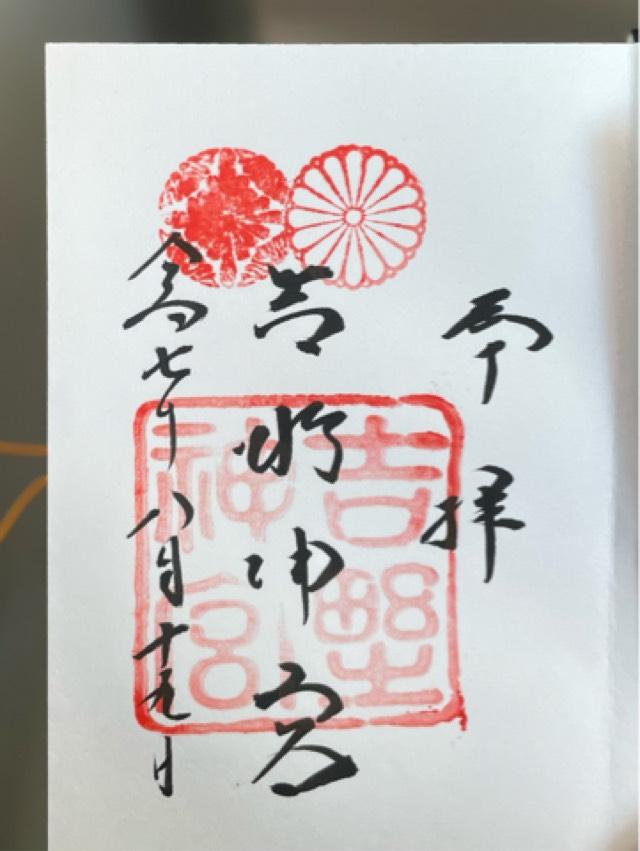 奉拝
吉野神宮
令和七年八月十九日
吉野神宮